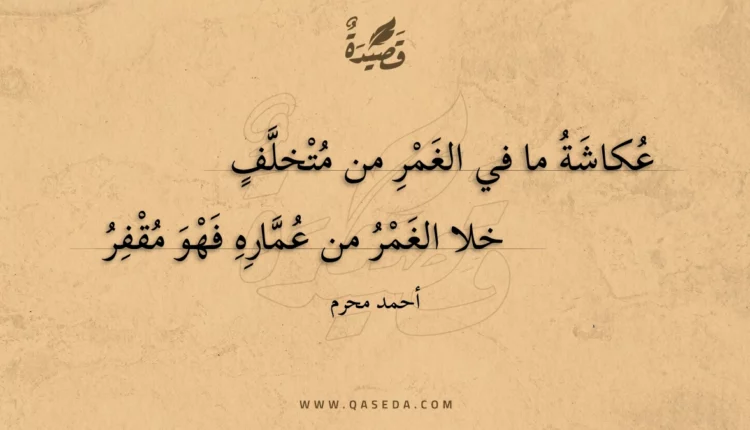 قَصِيْدَةٌ
عُكاشَةُ ما في الغَمْرِ من مُتْخلَّفٍ
خلا الغَمْرُ من عُمَّارِهِ فَهْوَ مُقْفِرُ
أحمد محرم
WWW.QASEDA.COM